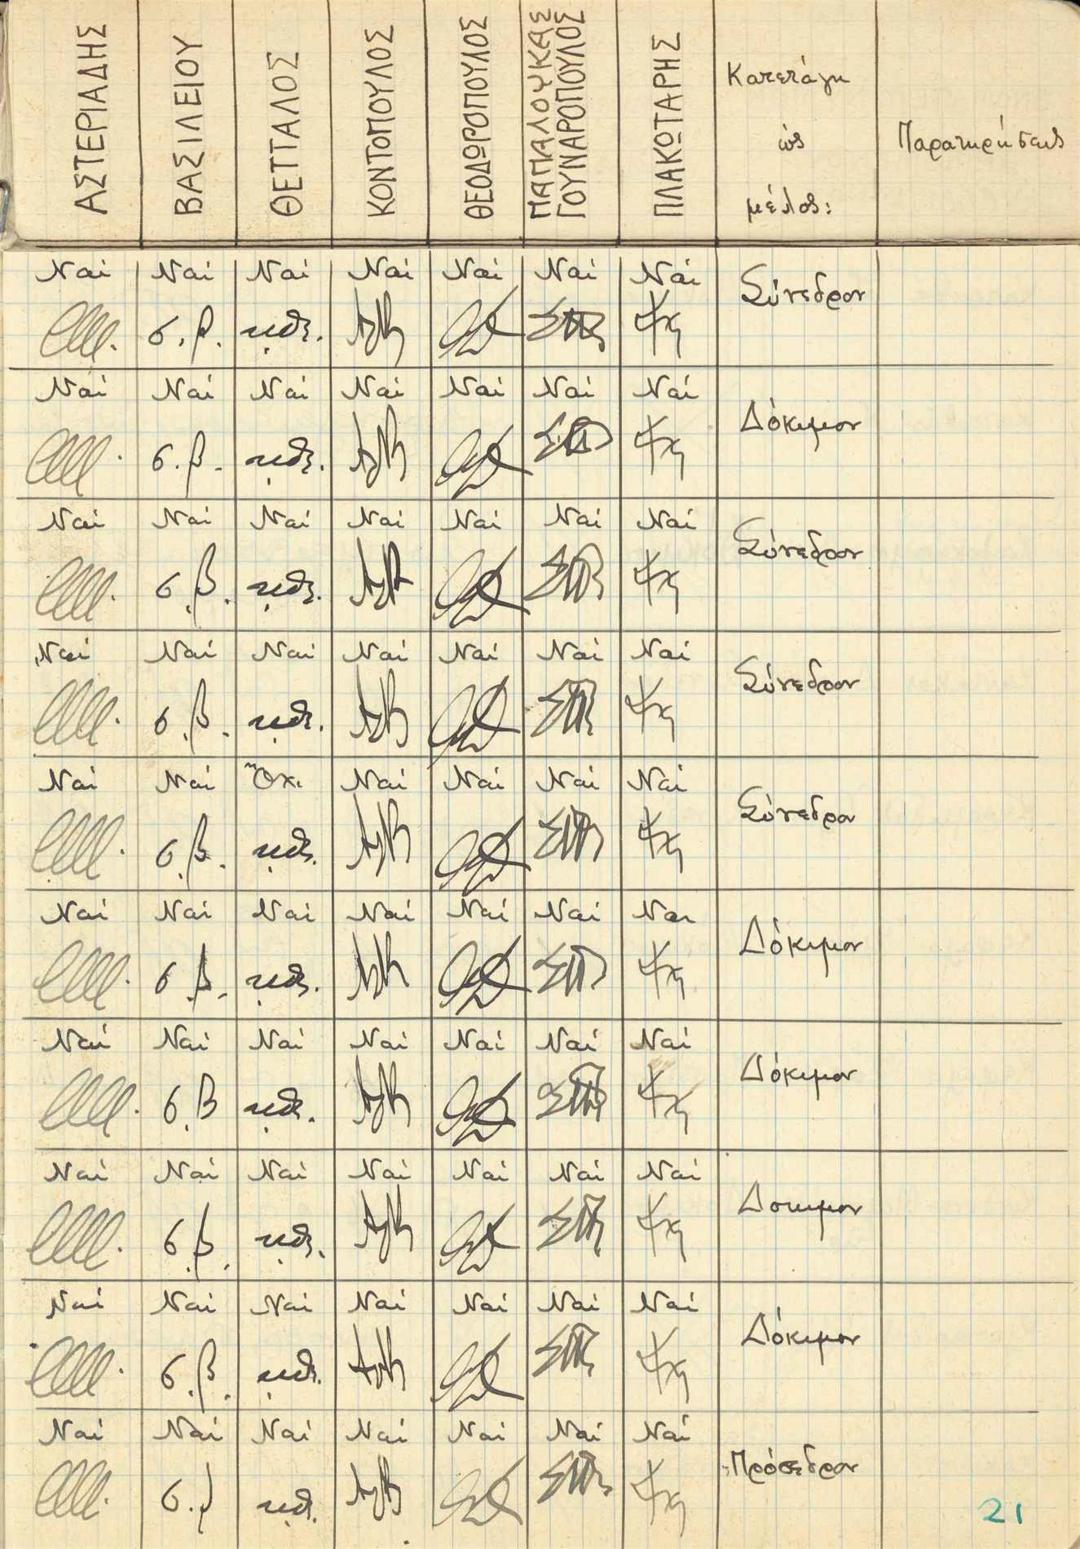 ΑΣΤΕΡΙΑΔΗΣ
ΒΑΣΙΛΕΙΟΥ
ΘΕΤΤΑΛΟΣ
ΚΟΝΤΟΠΟΥΛΟΣ
ΘΕΟΔΩΡΟΠΟΥΛΟΣ
ΠΑΠΑΛΟΥΚΑΣ
ΓΟΥΝΑΡΟΠΟΥΛΟΣ
ΠΛΑΚΩΤΑΡΗΣ
Κατετάγη
ὡς
μέλος:
Παρατηρήσεις
Ναί Ναί Ναί Ναί Ναί Ναί Ναί Σύνεδρον
σ.β.
Ναί Ναί Ναί Ναί Ναί Ναί Ναί Δόκιμον
σ.β.
Ναί Ναί Ναί Ναί Ναί Ναί Ναί Σύνεδρον
σ.β.
Ναί Ναί Ναί Ναί Ναί Ναί Ναί Σύνεδρον
σ.β.
Ναί Ναί Ὄχι Ναί Ναί Ναί Ναί Σύνεδρον
σ.β.
Ναί Ναί Ναί Ναί Ναί Ναί Ναι Δόκιμον
σ.β.
Ναί Ναί Ναί Ναί Ναί Ναί Ναί Δόκιμον
σ.β
Ναί Ναί Ναί Ναί Ναί Ναί Ναί Δοκιμον
σ.β.
Ναί Ναί Ναί Ναί Ναί Ναί Ναί Δόκιμον
σ.β.
Ναί Ναί Ναί Ναί Ναί Ναί Ναί Πρόσεδρον
21